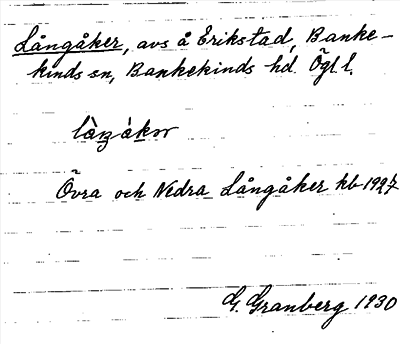 Långåker, avs å Erikstad, Banke-
kinds sn, Bankekinds hd. Ögl l.
Övra och Nedra Långåker kb 1927
G. Granberg 1930